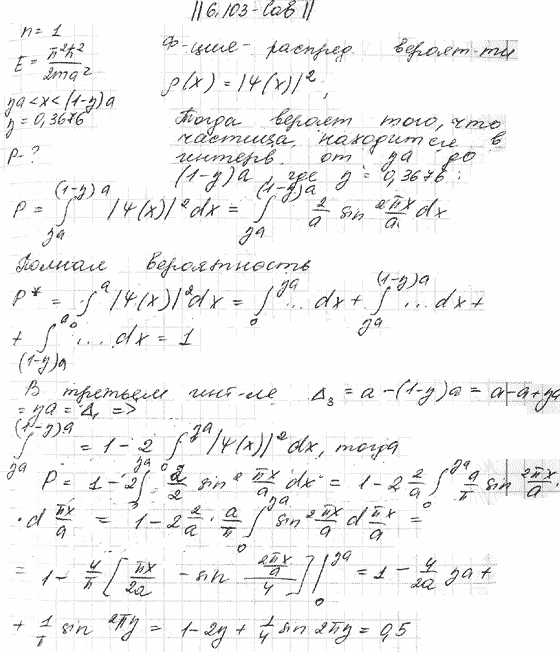 ||6.103-Сав||
n = 1
E = π²ħ² / 2ma²
ya < x < (1-y)a
y = 0,3676
P - ?
Ф-ция распред. вероят-ти
ρ(x) = |Ψ(x)|²,
Тогда вероят того, что
частица находится в
интерв. от ya до
(1-y)a, где y = 0,3676:
P = ∫_{ya}^{(1-y)a} |Ψ(x)|² dx = ∫_{ya}^{(1-y)a} 2/a sin 2πx/a dx
Полная вероятность
P* = ∫_0^a |Ψ(x)|² dx = ∫_0^{ya} ... dx + ∫_{ya}^{(1-y)a} ... dx +
+ ∫_{(1-y)a}^a ... dx = 1
В третьем инт-ле Δ₃ = a - (1-y)a = a - a + ya
= ya = Δ₁ =>
∫_{ya}^{(1-y)a} = 1 - 2 ∫_0^{ya} |Ψ(x)|² dx, тогда
P = 1 - 2 ∫_0^{ya} 2/2 sin² πx/a dx = 1 - 2 2/a ∫_0^{ya} a/π sin 2πx/a ·
· d πx/a = 1 - 2 2/a · a/π ∫_0^{ya} sin 2πx/a d πx/a =
= 1 - 4/π [πx/2a - sin 2πx/a / 4] |_0^{ya} = 1 - 4/2a ya +
+ 1/π sin 2πy = 1 - 2y + 1/4 sin 2πy = 0,5